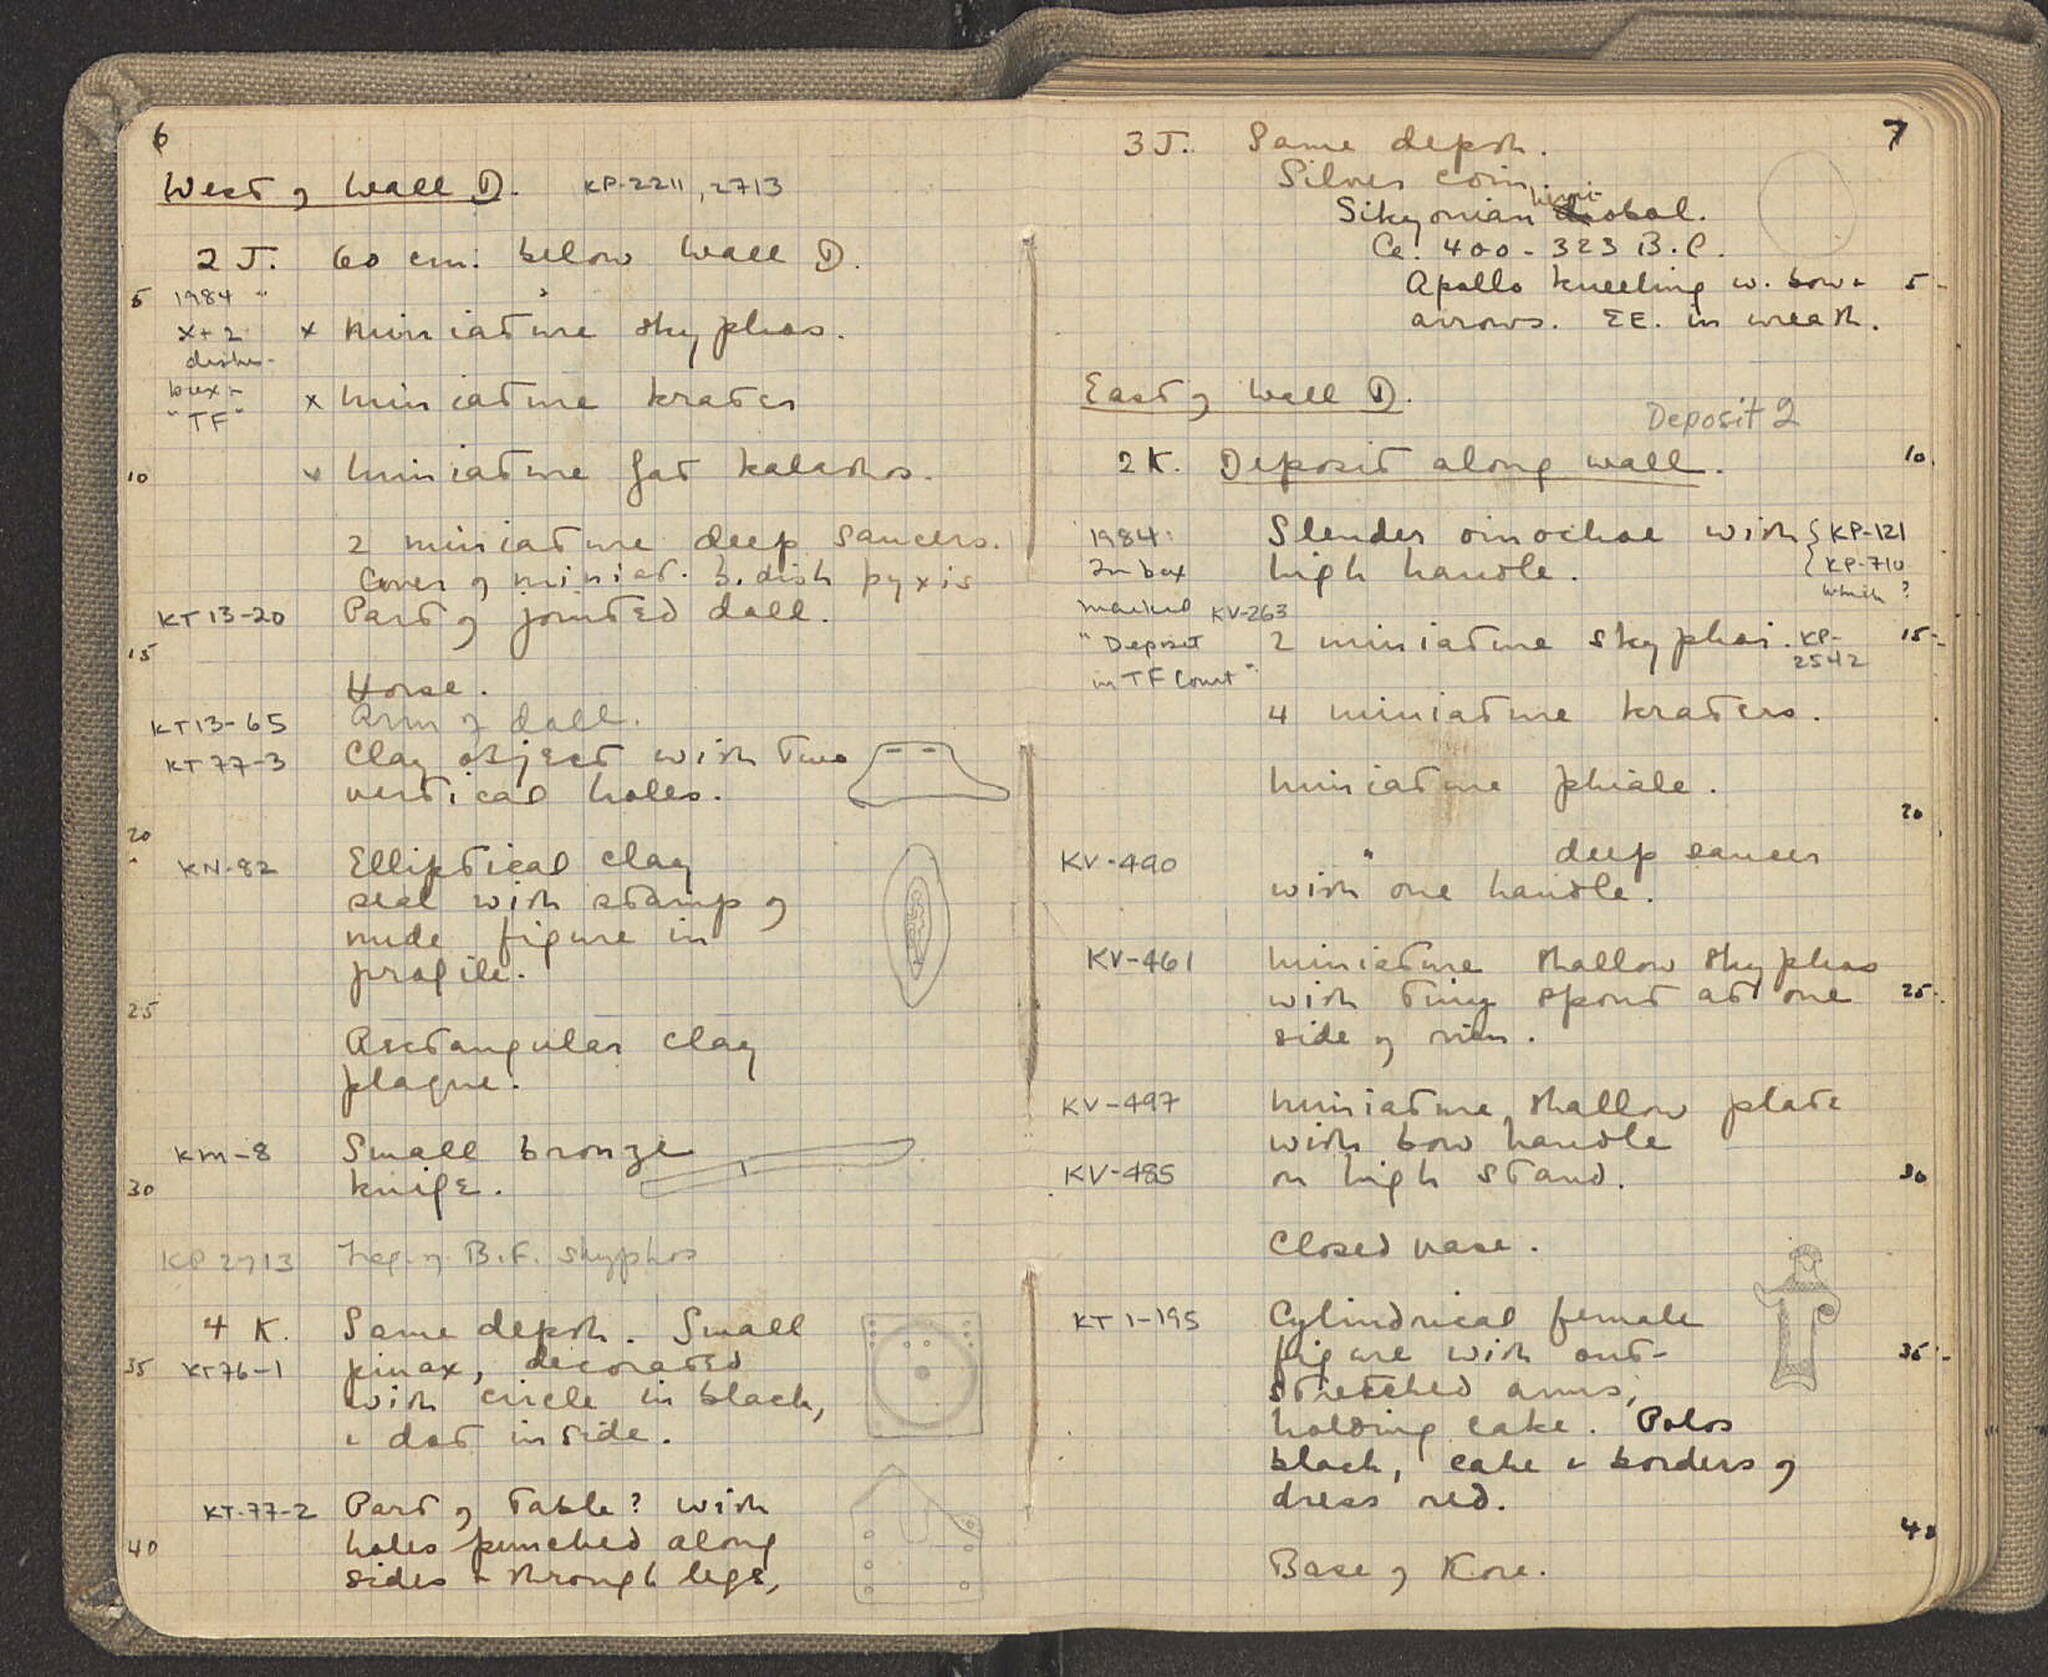 6
West of Wall D. KP-2211, 2713
2 J. 60 cm. below Wall D.
5 1984
x miniature skyphos.
x + 2
dishes -
box =
"TF"
x Miniature krater
10 x Miniature flat kalathos.
2 miniature deep saucers.
Cover of miniat. b. dish pyxis
KT 13-20 Part of jointed doll.
15
Horse.
KT 13-65 Arm of doll.
KT 77-3 Clay object with two
vertical holes.
20
KN-82 Elliptical clay
seal with stamp of
nude figure in
profile.
25
Rectangular clay
plaque.
KM-8 Small bronze
30 knife.
KP 2713 Frag. of B.F. skyphos
4 K. Same depth. Small
35 KT 76-1 pinax, decorated
with circle in black,
& dot inside.
KT-77-2 Part of Table? with
40 holes punched along
sides & through legs,
7
3 J. Same depth.
Silver coin.
Sikyonian hemi-obol.
Ca. 400-323 B.C.
Apollo kneeling w. bow & 5
arrows. ΣE. in wreath.
East of Wall D.
Deposit 2
2 K. Deposit along wall. 10
1984: Slender oinochoe with { KP-121
In box high handle. { KP-710
which?
marked KV-263
"Deposit 2 miniature skyphoi. KP- 15
2542
in TF Court"
4 miniature kraters.
Miniature phiale.
20
KV-490 " deep saucer
with one handle.
KV-461 Miniature shallow skyphos
with tiny spout at one 25
side of rim.
KV-497 Miniature, shallow plate
with bow handle
KV-485 on high stand. 30
Closed vase.
KT 1-195 Cylindrical female
figure with out- 35
stretched arms,
holding cake. Polos
black, cake & borders of
dress red.
40
Base of Kore.